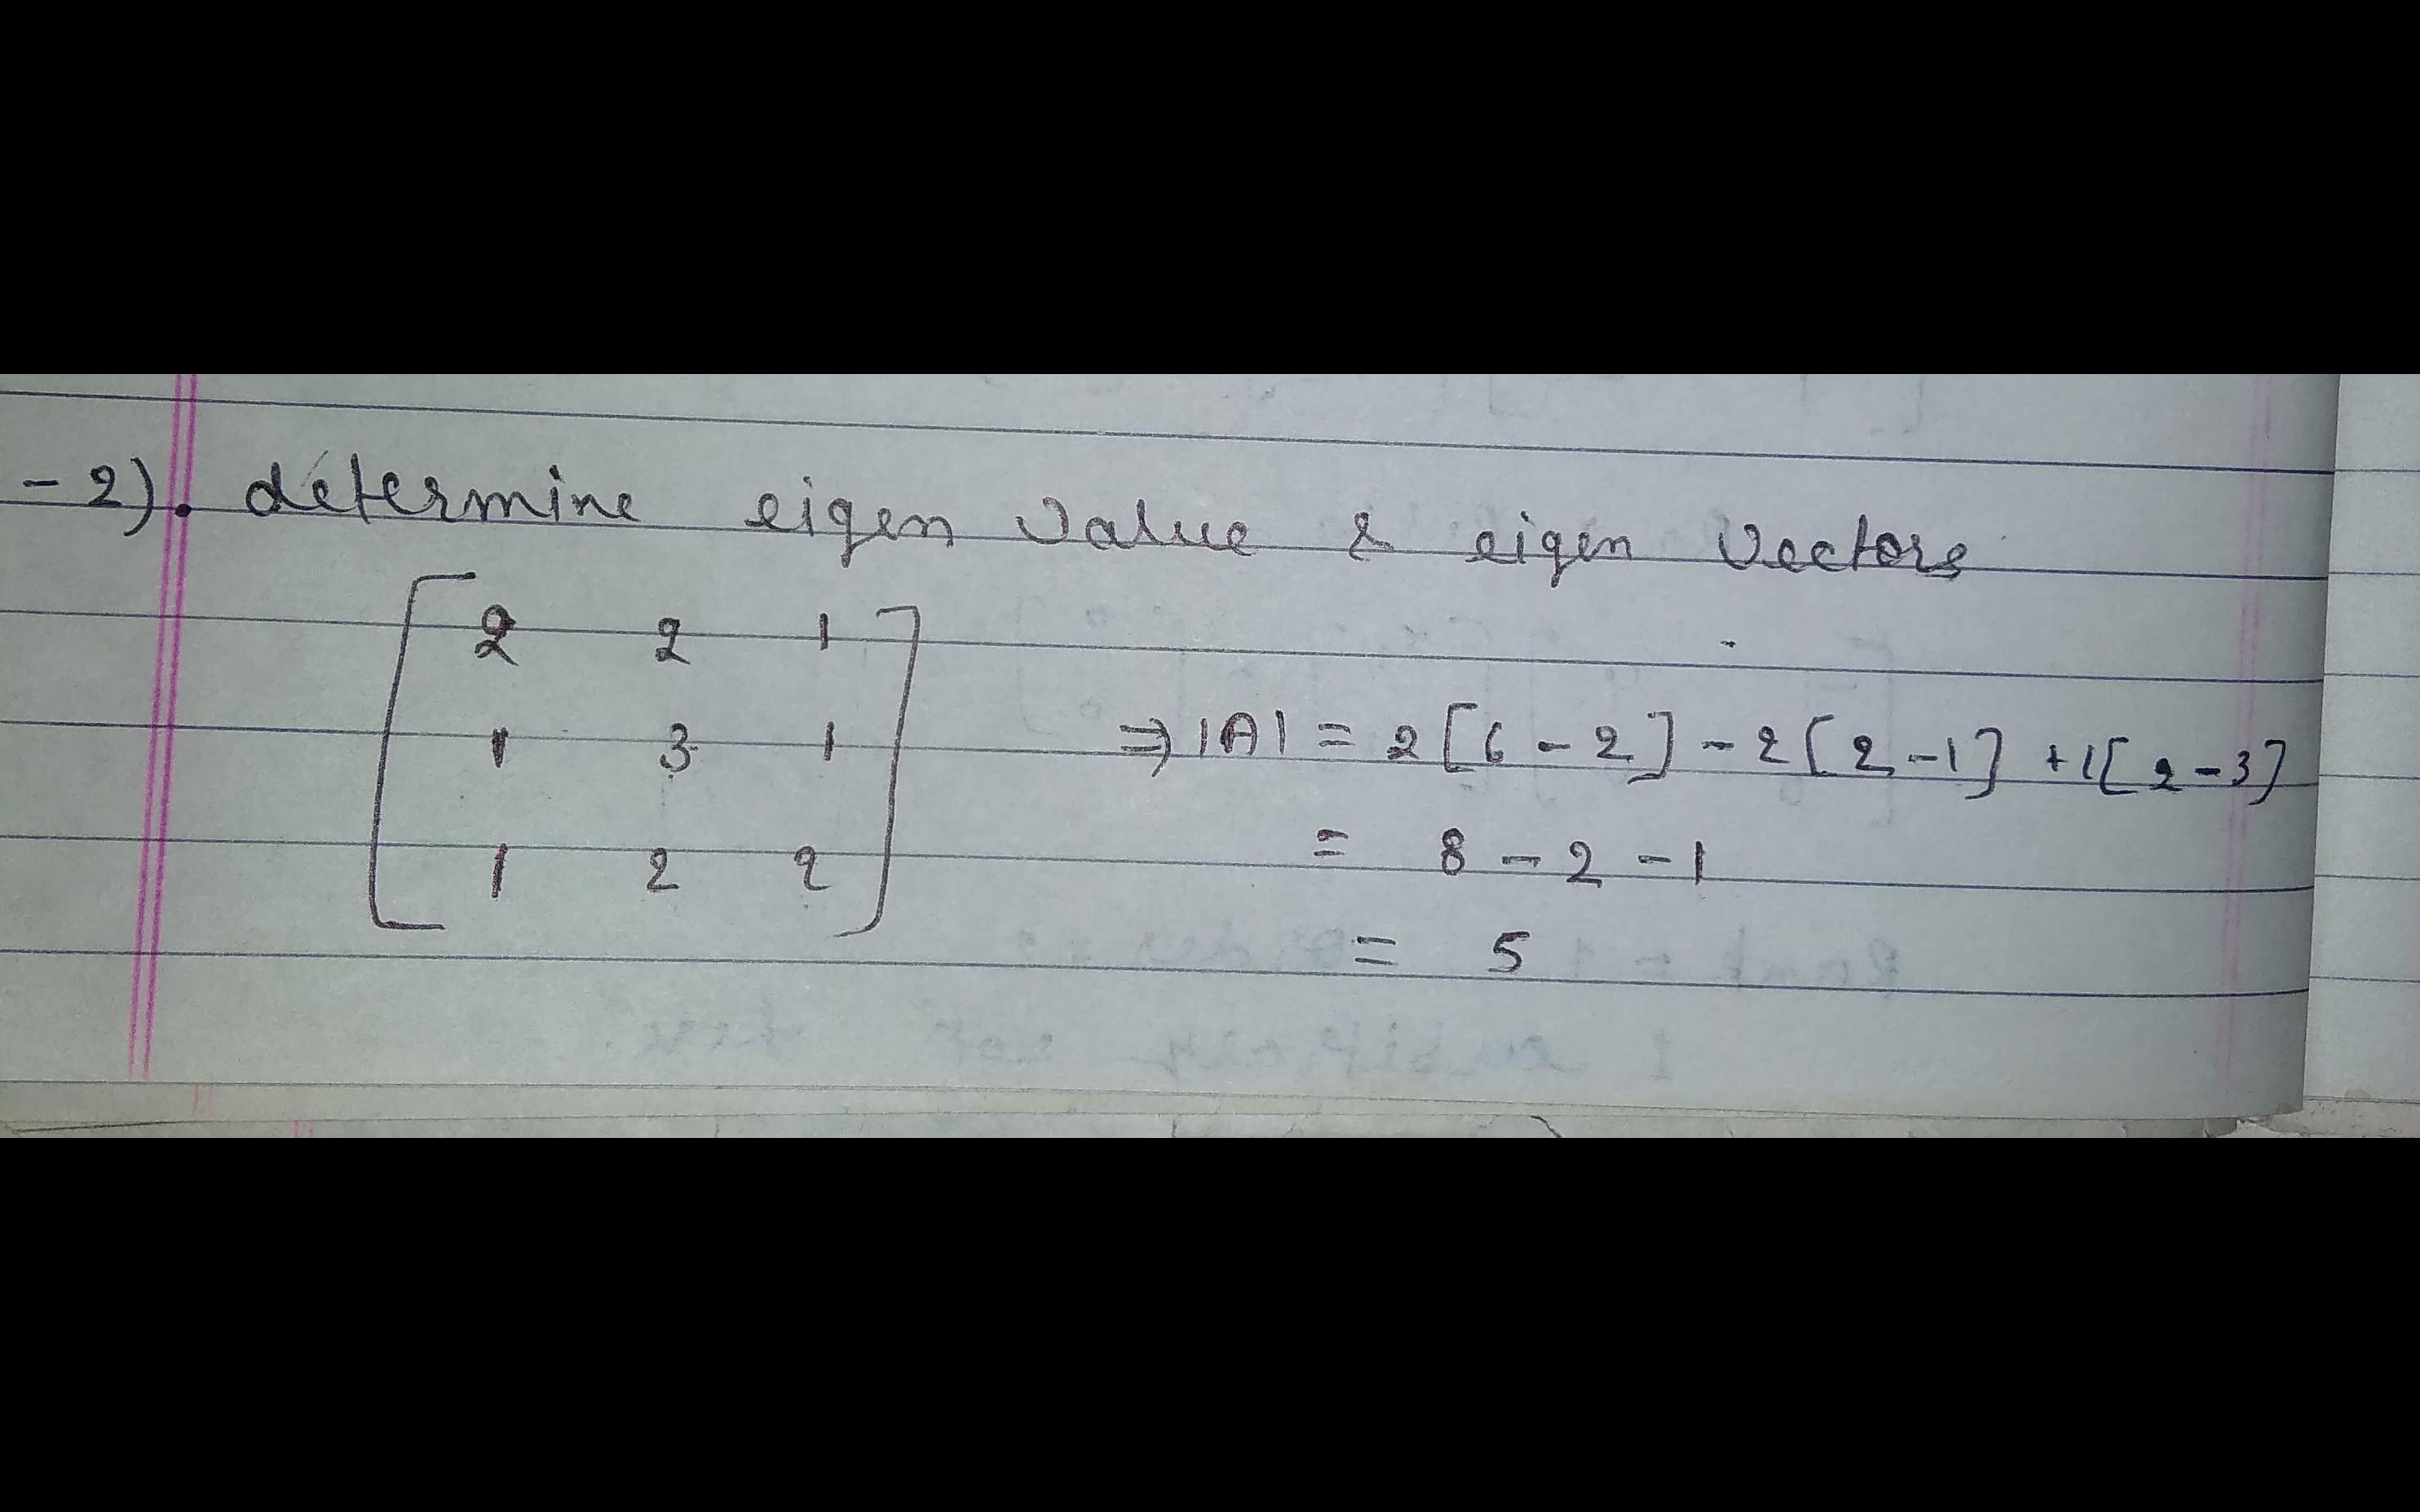 -2). determine eigen value & eigen vectors
2 2 1
1 3 1 ⇒ |A| = 2[6-2] -2[2-1] +1[2-3]
1 2 2 = 8 - 2 - 1
= 5